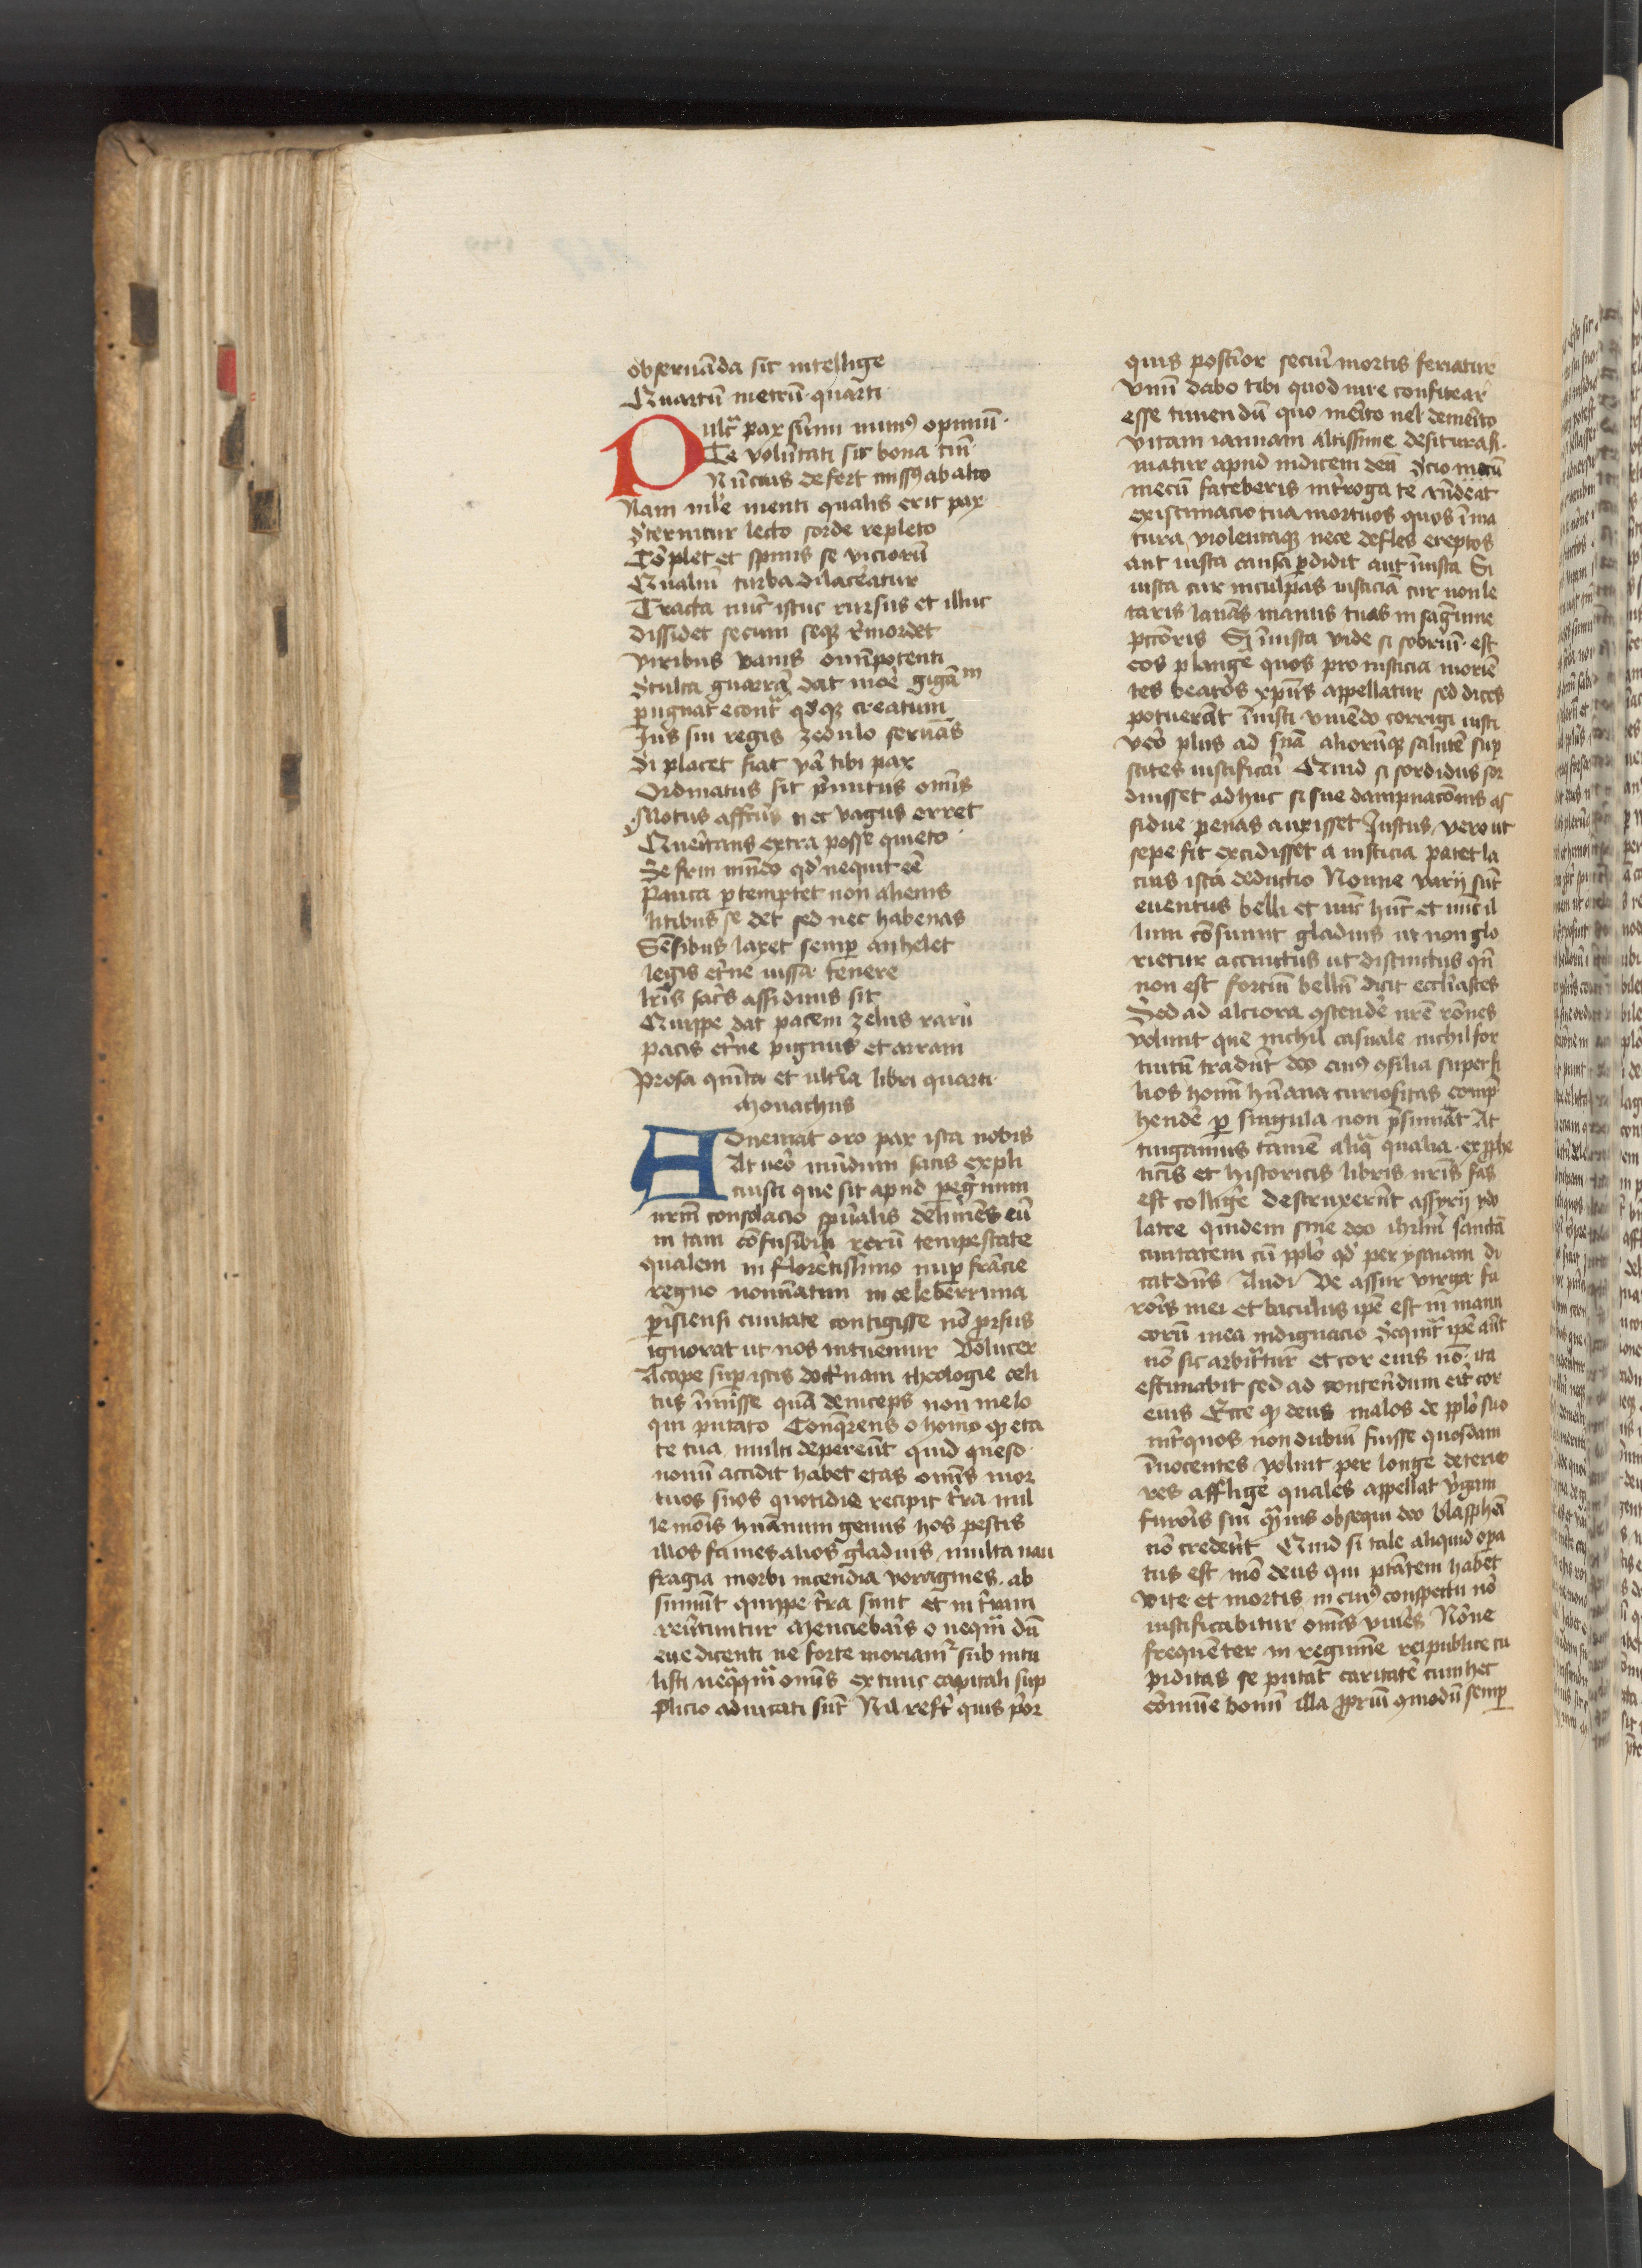 obseruāda sit intellige
Quartū metrū quarti
Pulcᷓ pax sūmi munꝰ opimū
Te volūtati sit bona tm̄
Nūcius defert missꝰ ab alto
Nam mīe menti qualis erit pax
Sternitur lecto sorde repleto
Cōplet et spinis se viciorū
Qualiū turba dilaceratur
Tracta nūc istuc rursus et illuc
dissidet secum seqꝫ r̄mordet
viribus vanis om̄ipotenti
Stulta guarrā dat moē gigātū
pugnat econtᷓ qd'qꝫ creatum
Ius sui regis zedulo seruās
Si placet fiat vā tibi pax
Ordinatus sit pūnitus om̄is
Motus affcūs nec vagus erret
Queritans extra posse quieto
Se frui mūdo qd' nequit eē
Pauca pertemptet non alienis
litibus se det sed nec habenas
Sēsibus laxet semꝑ anhelet
legis et'ne iussa tenere
lr̄is sac̄s assiduus sit
Quippe dat pacem zelus rarū
pacis et'ne pignus et arram
Prosa quīta et ultīa libri quarti
Monachus
Adueniat oro pax ista nobis
At vero mūdum satis expli
cuisti que sit apud pegᷓnum
nrm̄ consolacio spūalis deliniēs eū
in tam cōfusibili rerū tempestate
qualem in florētissimo nuꝑ frācie
regno nomīatim in celeberrima
p̄isiensi ciuitate contigisse nō prorsus
ignorat ut nos intuemur Volucer
Accipe suꝑ istis doctrinam theologie celi
tus īmisse quā deinceps non melo
qui putato Conq̄rens o homo qꝫ eta
te tua multi deperēt quid queso
nouū accidit habet etas omīs mor
tuos suos quotidie recipit t̄ra mil
le mōis hūanum genus hos pestis
illos fames alios gladius multa nau
fragia morbi incendia voragines ab
sumūt quippe t̄ra sunt et in t̄ram
reūtuntur Menciebaīs o neqm̄ dū
eue dicenti ne forte moriamur sub intu
listi neqᷓqᷓ omēs ex tunc capitali sup
plicio adiucati sūt Nil refert quis p̄or
quis postīor seciū mortis feriatur
Vnū dabo tibi quod iure confitear
esse timendū quo merito uel demerito
vitam ianuam altissime desituras
matur apud iudicem deū Scio mecū
mecū fateberis int̄roga te rn̄deat
existimacio tua mortuos quos īma
tura violentaqꝫ nece defles ereptos
aut iusta causa ꝑdidit aut īiusta Si
iusta cur inculpas iusticiā cur non le
taris lauās manus tuas in sāgwine
pctōris Si īiusta vide si sobriū est
eos plange quos pro iusticia moriē
tes beatos xp̄us appellatur sed dices
potuerāt īiusti viuēdo corrigi iusti
vero plus ad suā aliorūqꝫ salutē sup
stites iustificari Quid si sordidus sor
duisset adhuc si sue dampnacōnis as
sidue penas auxisset Iustus vero ut
sepe fit excidisset a iusticia patet la
cius ista deductio Nonne varij sūt
euentus belli et nūc hūc et nūc il
lum cōsumit gladius ut non glo
rietur accinctus ut distinctus qm̄
non est fortiū bellū dicit eccl'iastes
Sed ad alciora ꝯstende nr̄e rōnes
volunt que nichil casuale nichil for
tuitū tradūt deo cuiꝰ ꝯsilia super fi
lios homī hūana curiositas comp̄
hende ꝑ singula non p̄sumat At
tingamus tamē aliqᷓ qualia ex ꝓphe
ticis et historicis libris nr̄is fas
est colligē destruxerūt assyrij ydo
latre quidem sine deo ihrlm̄ sanctā
ciuitatem cū pplō qd' per ysaiam di
cat dn̄s Audi Ve assur virga fu
roris mei et baculus ipē est in manu
eorū mea indignacio Seqūtur ipē aūt
nō sic arbitᷓtur et cor eius nō ita
estimabit sed ad conterēdum erit cor
eius Ecce qꝫ deus malos de pplō suo
int̄ quos non dubiū fuisse quosdam
īnocentes voluit per longe deterio
res affligē quales appellat virgam
furōis sui qᷓuis obsequi deo blasphēi
nō crederēt Quid si tale aliquid opa
tus est mō deus qui ptātem habet
vite et mortis in cuiꝰ conspectu nō
iustificabitur omīs viuēs Nōne
frequēter in regimīe reipublice cu
piditas se putat caritatē cum hec
cōmune bonū illa ꝓpriū ꝯmodū semꝑ